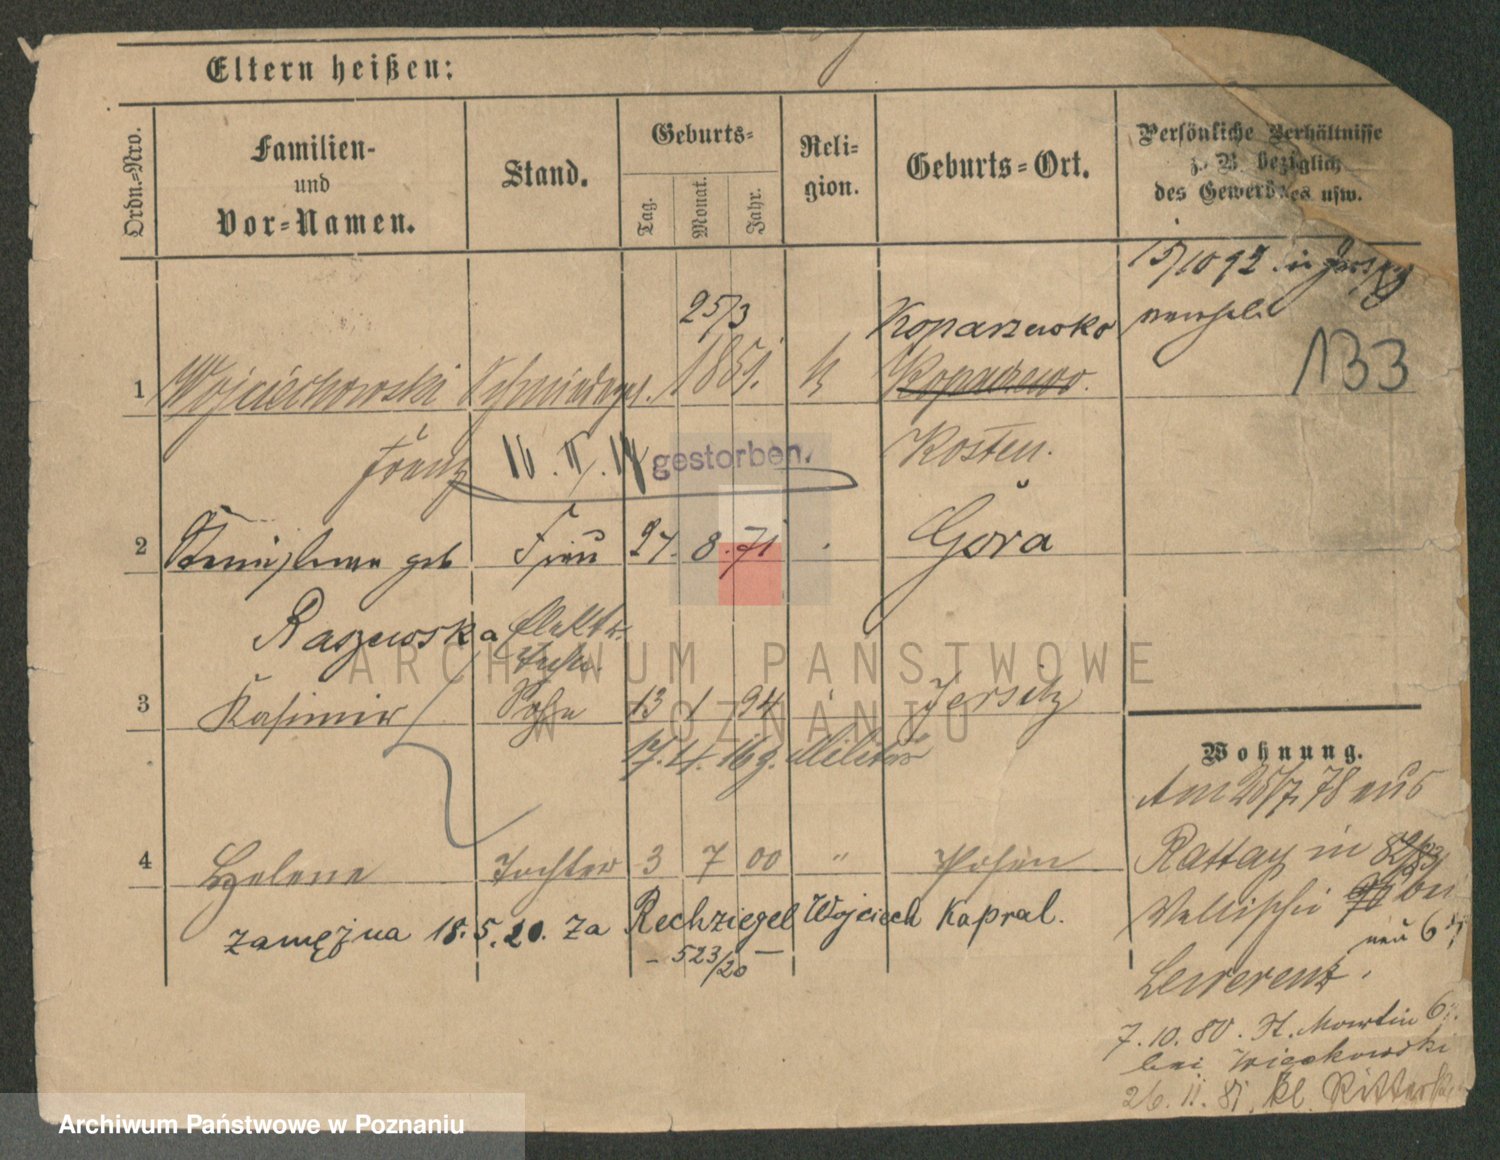 Eltern heißen:
Ordn.-Nro.
Familien-
und
Vor-Namen.
Stand.
Geburts-
Tag.
Monat.
Jahr.
Reli-
gion.
Geburts-Ort.
Persönliche Verhältnisse
z. B. bezüglich
des Gewerbes usw.
15/10 92. in
25/3
Koparzewko
133
1 Wojciechowski 1851. Koparzewo.
Franz 16. II. 14 gestorben. Kosten.
2 Stanislawa geb Frau 27. 8. 71 Góra
Raszewska Elektr.
Techn.
3 Kasimir Sohn 13 1 94 Jersitz
17. 4. 16 z. Militär
4 Helene Tochter 3 7 00 " Posen
zamężna 18.5.20. za Rechziegel Wojciech Kapral.
- 523/20 -
Wohnung.
Am 25/7 78 aus
Rattay in 82/83
Wallischei bei
neu 6
7.10.80. St. Martin 6
bei Więckowski
26. 11. 81. Kl. Ritterstr.
ARCHIWUM PAŃSTWOWE
W POZNANIU
Archiwum Państwowe w Poznaniu